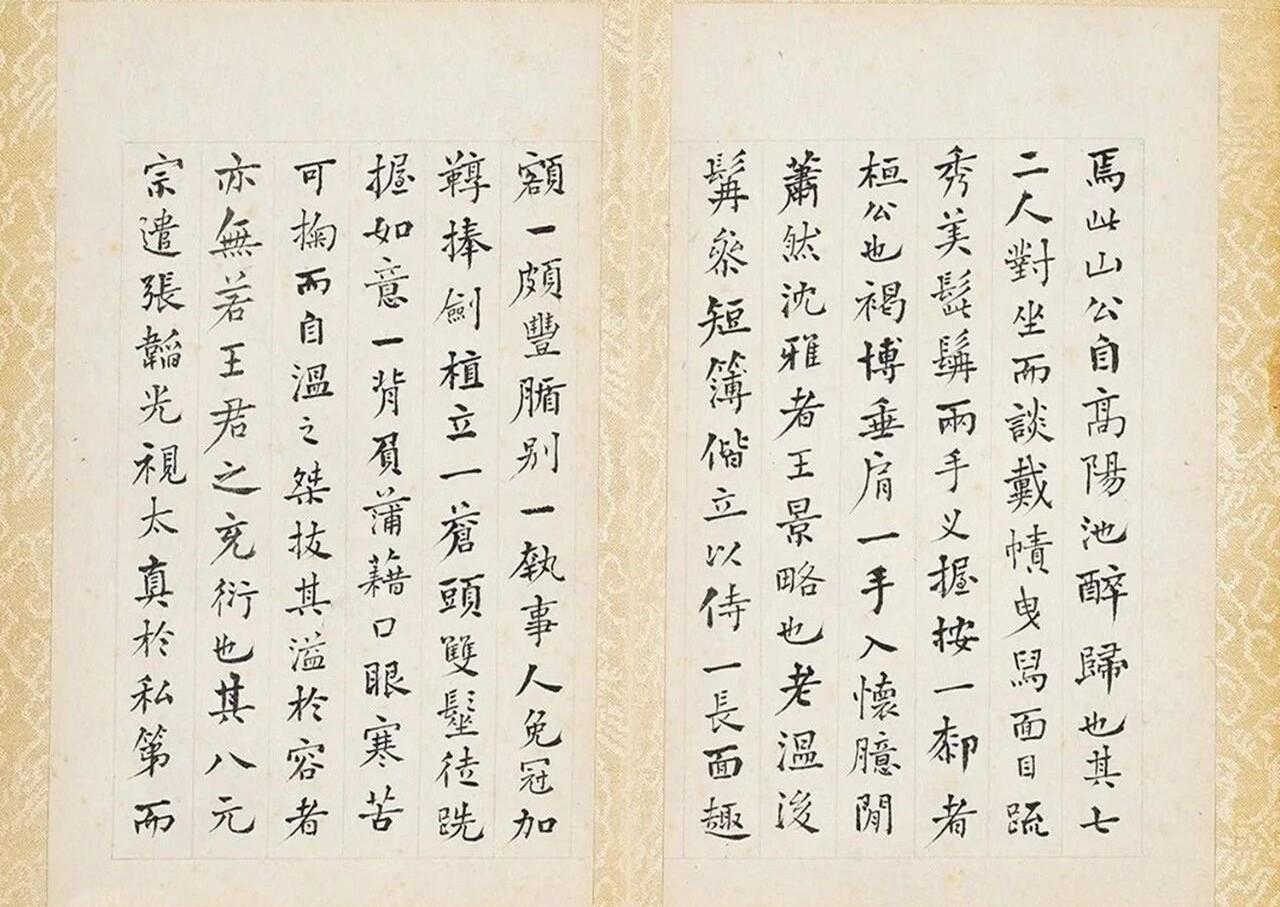 焉此山公自高陽池醉歸也其七
二人對坐而談戴幘曳舄面目疏
秀美髭髯兩手义握按一郄者
桓公也褐博垂肩一手入懷臆閒
蕭然沈雅者王景略也老溫後
髯叅短簿偕立以侍一長面趣
額一頗豐腯别一執事人免冠加
鞟捧劍植立一蒼頭雙髽徒跣
握如意一背負蒲藉口眼寒苦
可掬而自溫之桀抜其溢於容者
亦無若王君之充衍也其八元
宗遣張韜光視太真於私第而